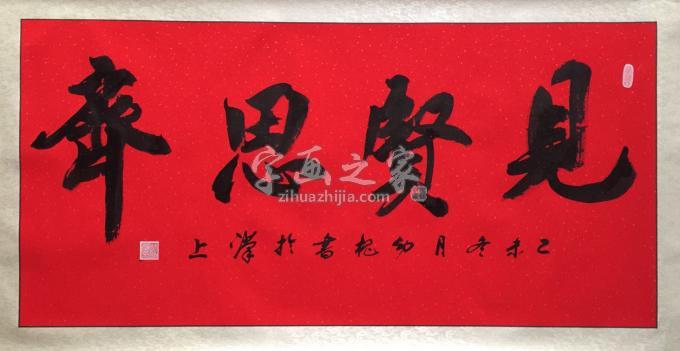 見賢思齊
字画之家
zihuazhijia.com
己未冬月幼桃書於漢上